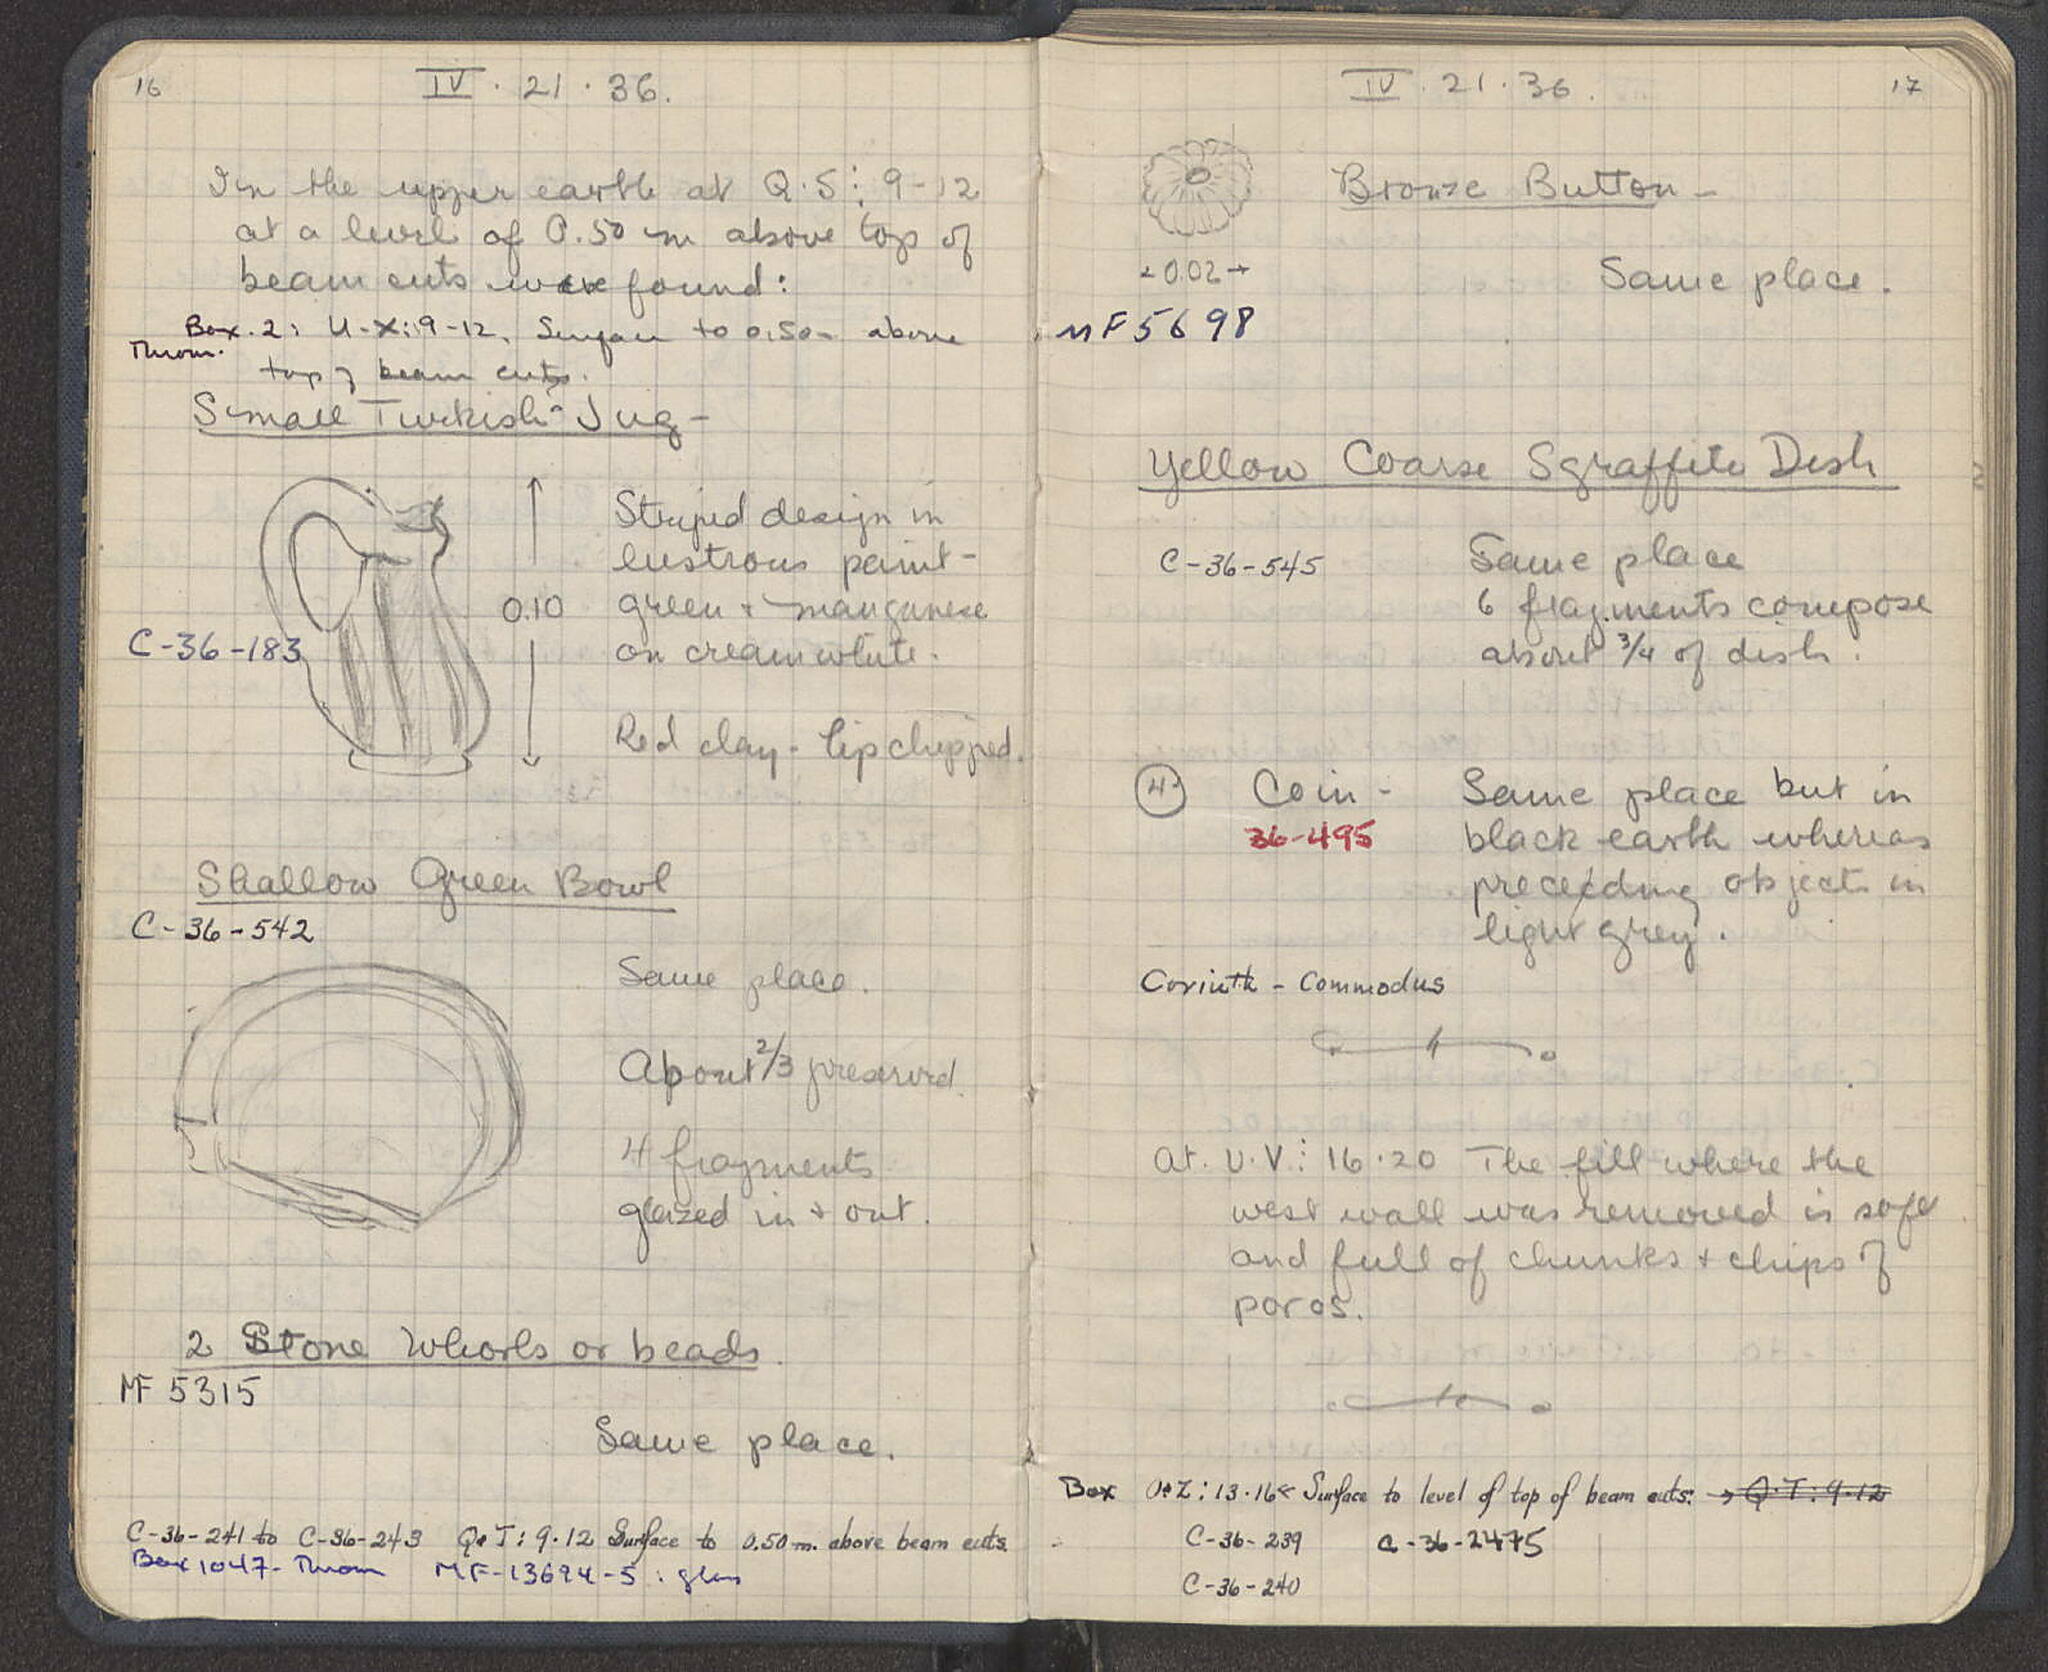 16
IV . 21 . 36.
In the upper earth at Q-S: 9-12
at a level of 0.50 m above top of
beam cuts were found:
Box. 2: U-X: 9-12. Surface to 0.50m above
Throm.
top of beam cuts.
Small Turkish Jug -
Striped design in
lustrous paint -
0.10 green + manganese
C-36-183 on cream white.
Red clay - lip chipped.
Shallow Green Bowl
C-36-542
Same place.
About 2/3 preserved.
4 fragments
glazed in + out.
2 Stone Whorls or beads.
MF 5315
Same place.
C-36-241 to C-36-243 Q-T: 9-12 Surface to 0.50 m. above beam cuts.
Box 1047- Thrown MF-13694-5: glass
IV . 21 . 36. 17
Bronze Button -
0.02 Same place.
MF 5698
Yellow Coarse Sgraffito Dish
C-36-545 Same place
6 fragments compose
about 3/4 of dish.
4 Coin - Same place but in
36-495 black earth whereas
preceding objects in
light grey.
Corinth - Commodus
At. U-V: 16-20 The fill where the
west wall was removed is soft
and full of chunks + chips of
poros.
Box : 13-16 Surface to level of top of beam cuts: → Q-T: 9-12
C-36-239 C-36-2475
C-36-240